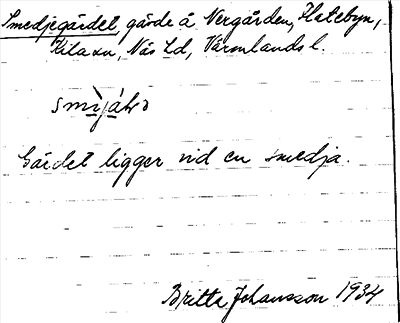 Smedjegärdet, gärde å Nergården, Flatebyn,
Kila sn, Näs hd, Värmlands l.
Gärdet ligger vid en smedja.
Britta Johansson 1934